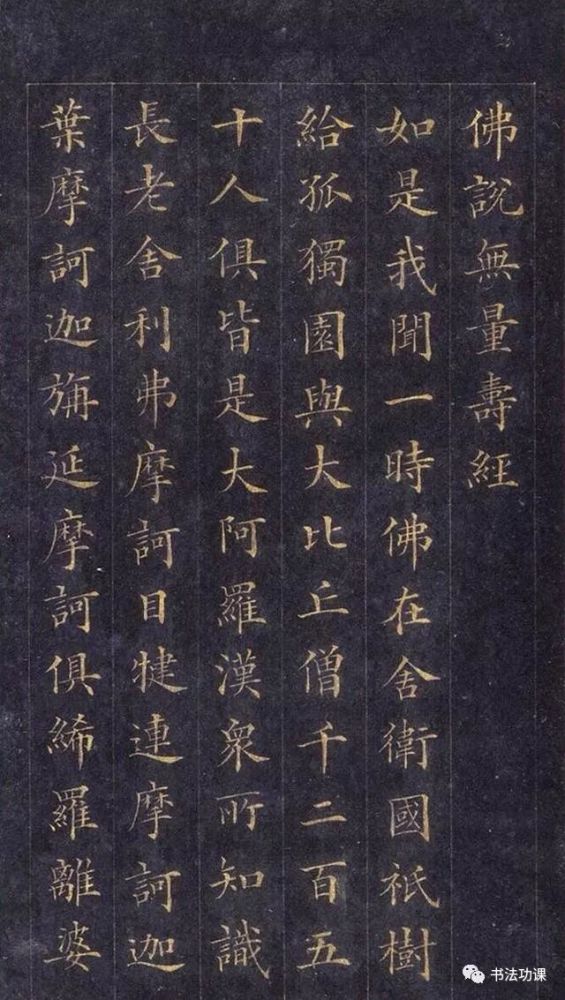 佛說無量壽經
如是我聞一時佛在舍衛國祇樹
給孤獨園與大比丘僧千二百五
十人俱皆是大阿羅漢衆所知識
長老舍利弗摩訶目犍連摩訶迦
葉摩訶迦旃延摩訶俱絺羅離婆
书法功课